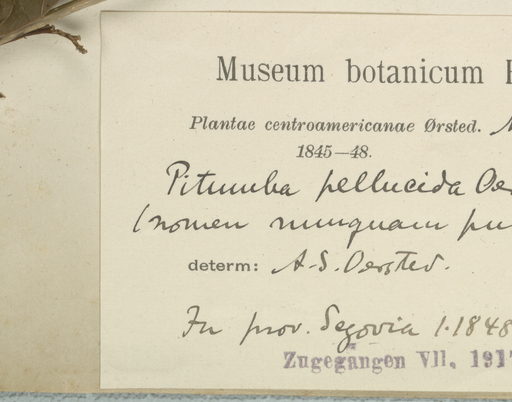 Museum botanicum
Plantae centroamericanae Ørsted.
1845—48.
Pitumba pellucida Oer
(nomen nunquam pu
determ: A. S. Oersted.
In prov. Segovia 1.1848
Zugegangen VII. 191